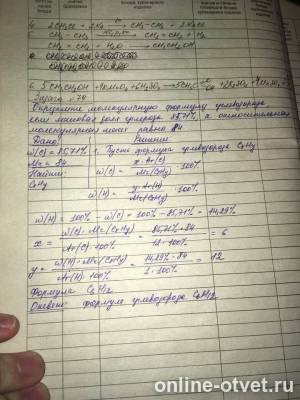 4. 2CH₃Cl + 2Na → CH₃–CH₃ + 2NaCl
CH₂=CH₂ + H₂O → CH₃CH₂OH
6. 5CH₃CH₂OH + 4KMnO₄ + 6H₂SO₄ → 5CH₃C
Задача
Определите молекулярную формулу углеводорода,
если массовая доля углерода 85,71%, а относительная
молекулярная масса равна 84
Дано: Решение
w(C) = 85,71% 1. Пусть формула углеводорода CxHy
Mr = 84 w(C) = x·Ar(C) / Mr(CxHy) · 100%
Найти:
CxHy w(H) = y·Ar(H) / Mr(CxHy) · 100%
w(H) = 100% - w(C) = 100% - 85,71% = 14,29%
x = w(C)·Mr(CxHy) / Ar(C)·100% = 85,71%·84 / 12·100% = 6
y = w(H)·Mr(CxHy) / Ar(H)·100% = 14,29%·84 / 1·100% = 12
Формула C₆H₁₂
Ответ: формула углеводорода C₆H₁₂
online-otvet.ru